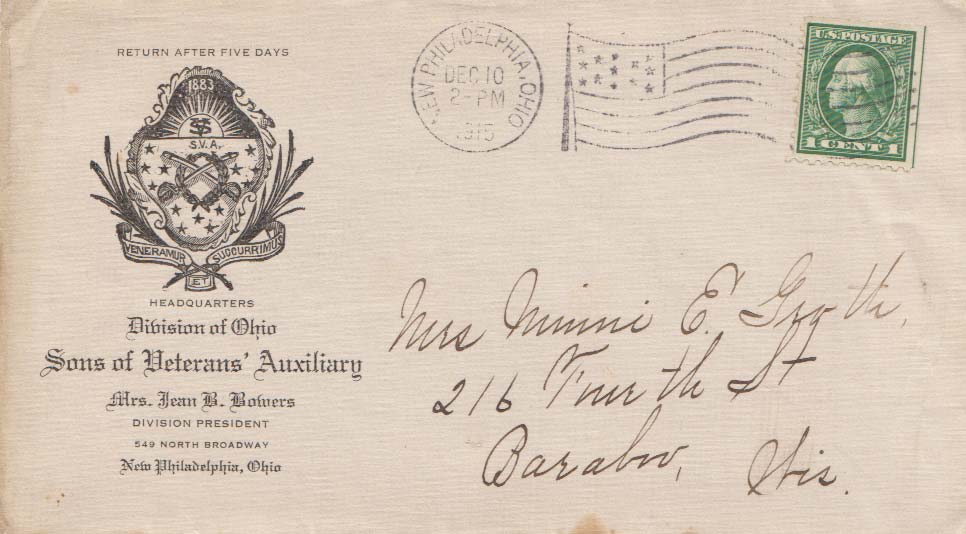 RETURN AFTER FIVE DAYS
1883
SV
S.V.A.
VENERAMUR ET SUCCURRIMUS
HEADQUARTERS
Division of Ohio
Sons of Veterans' Auxiliary
Mrs. Jean B. Bowers
DIVISION PRESIDENT
549 NORTH BROADWAY
New Philadelphia, Ohio
NEW PHILADELPHIA, OHIO
DEC 10
2-PM
1915
U.S. POSTAGE
1 CENT 1
Mrs Minnie E. Groth,
216 Fourth St
Baraboo, Wis.